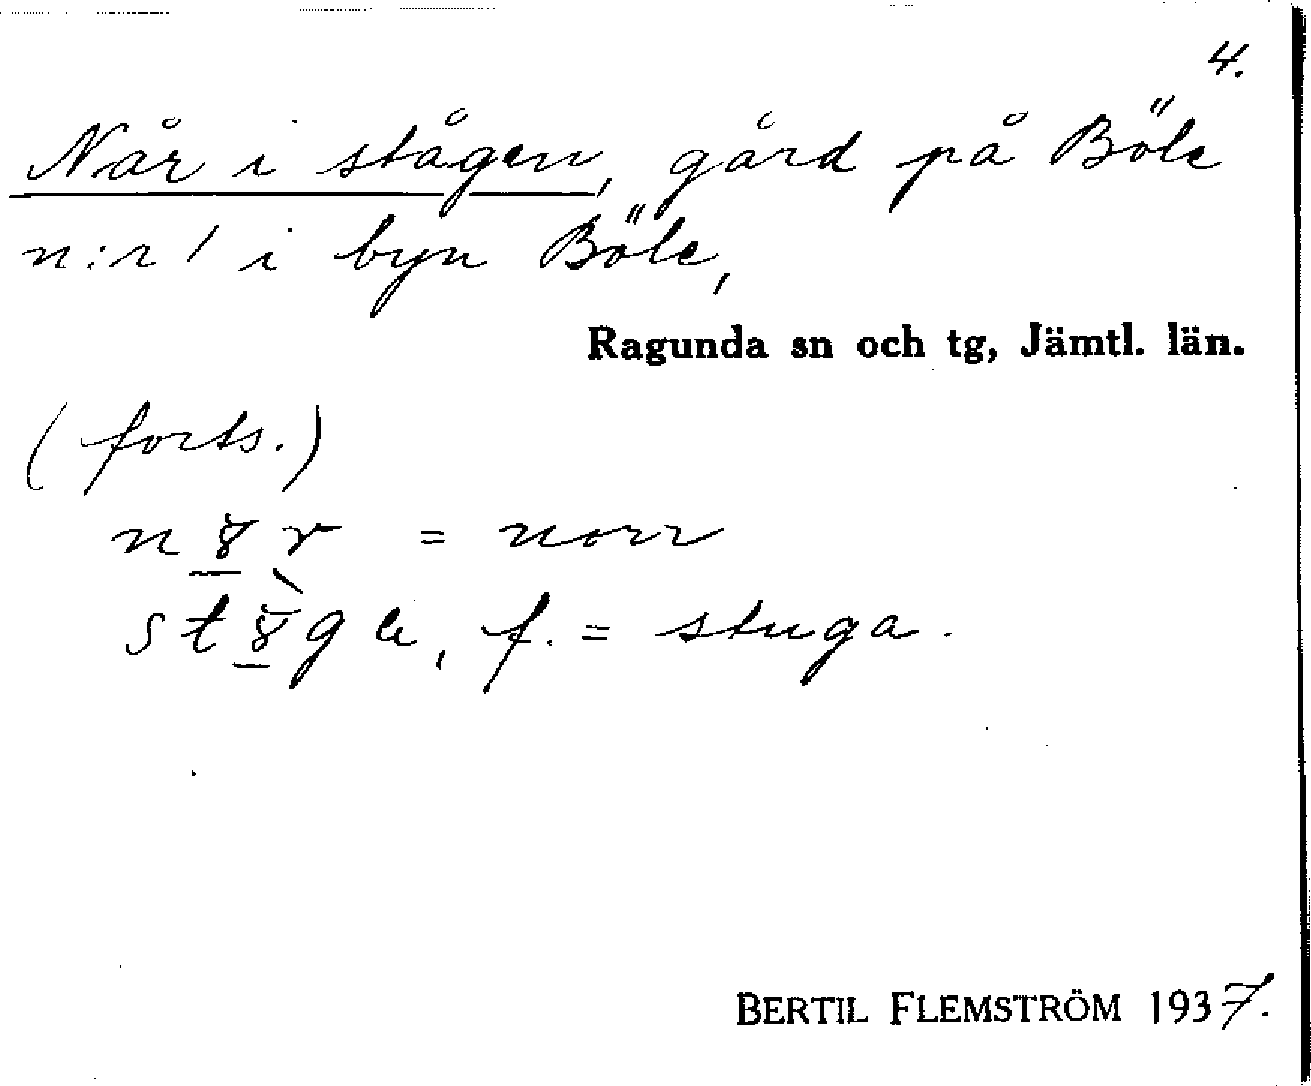 4.
Når i stågen, gård på Böle
n:r 1 i byn Böle,
Ragunda sn och tg, Jämtl. län.
(forts.)
= norr
f. = stuga.
BERTIL FLEMSTRÖM 1937.